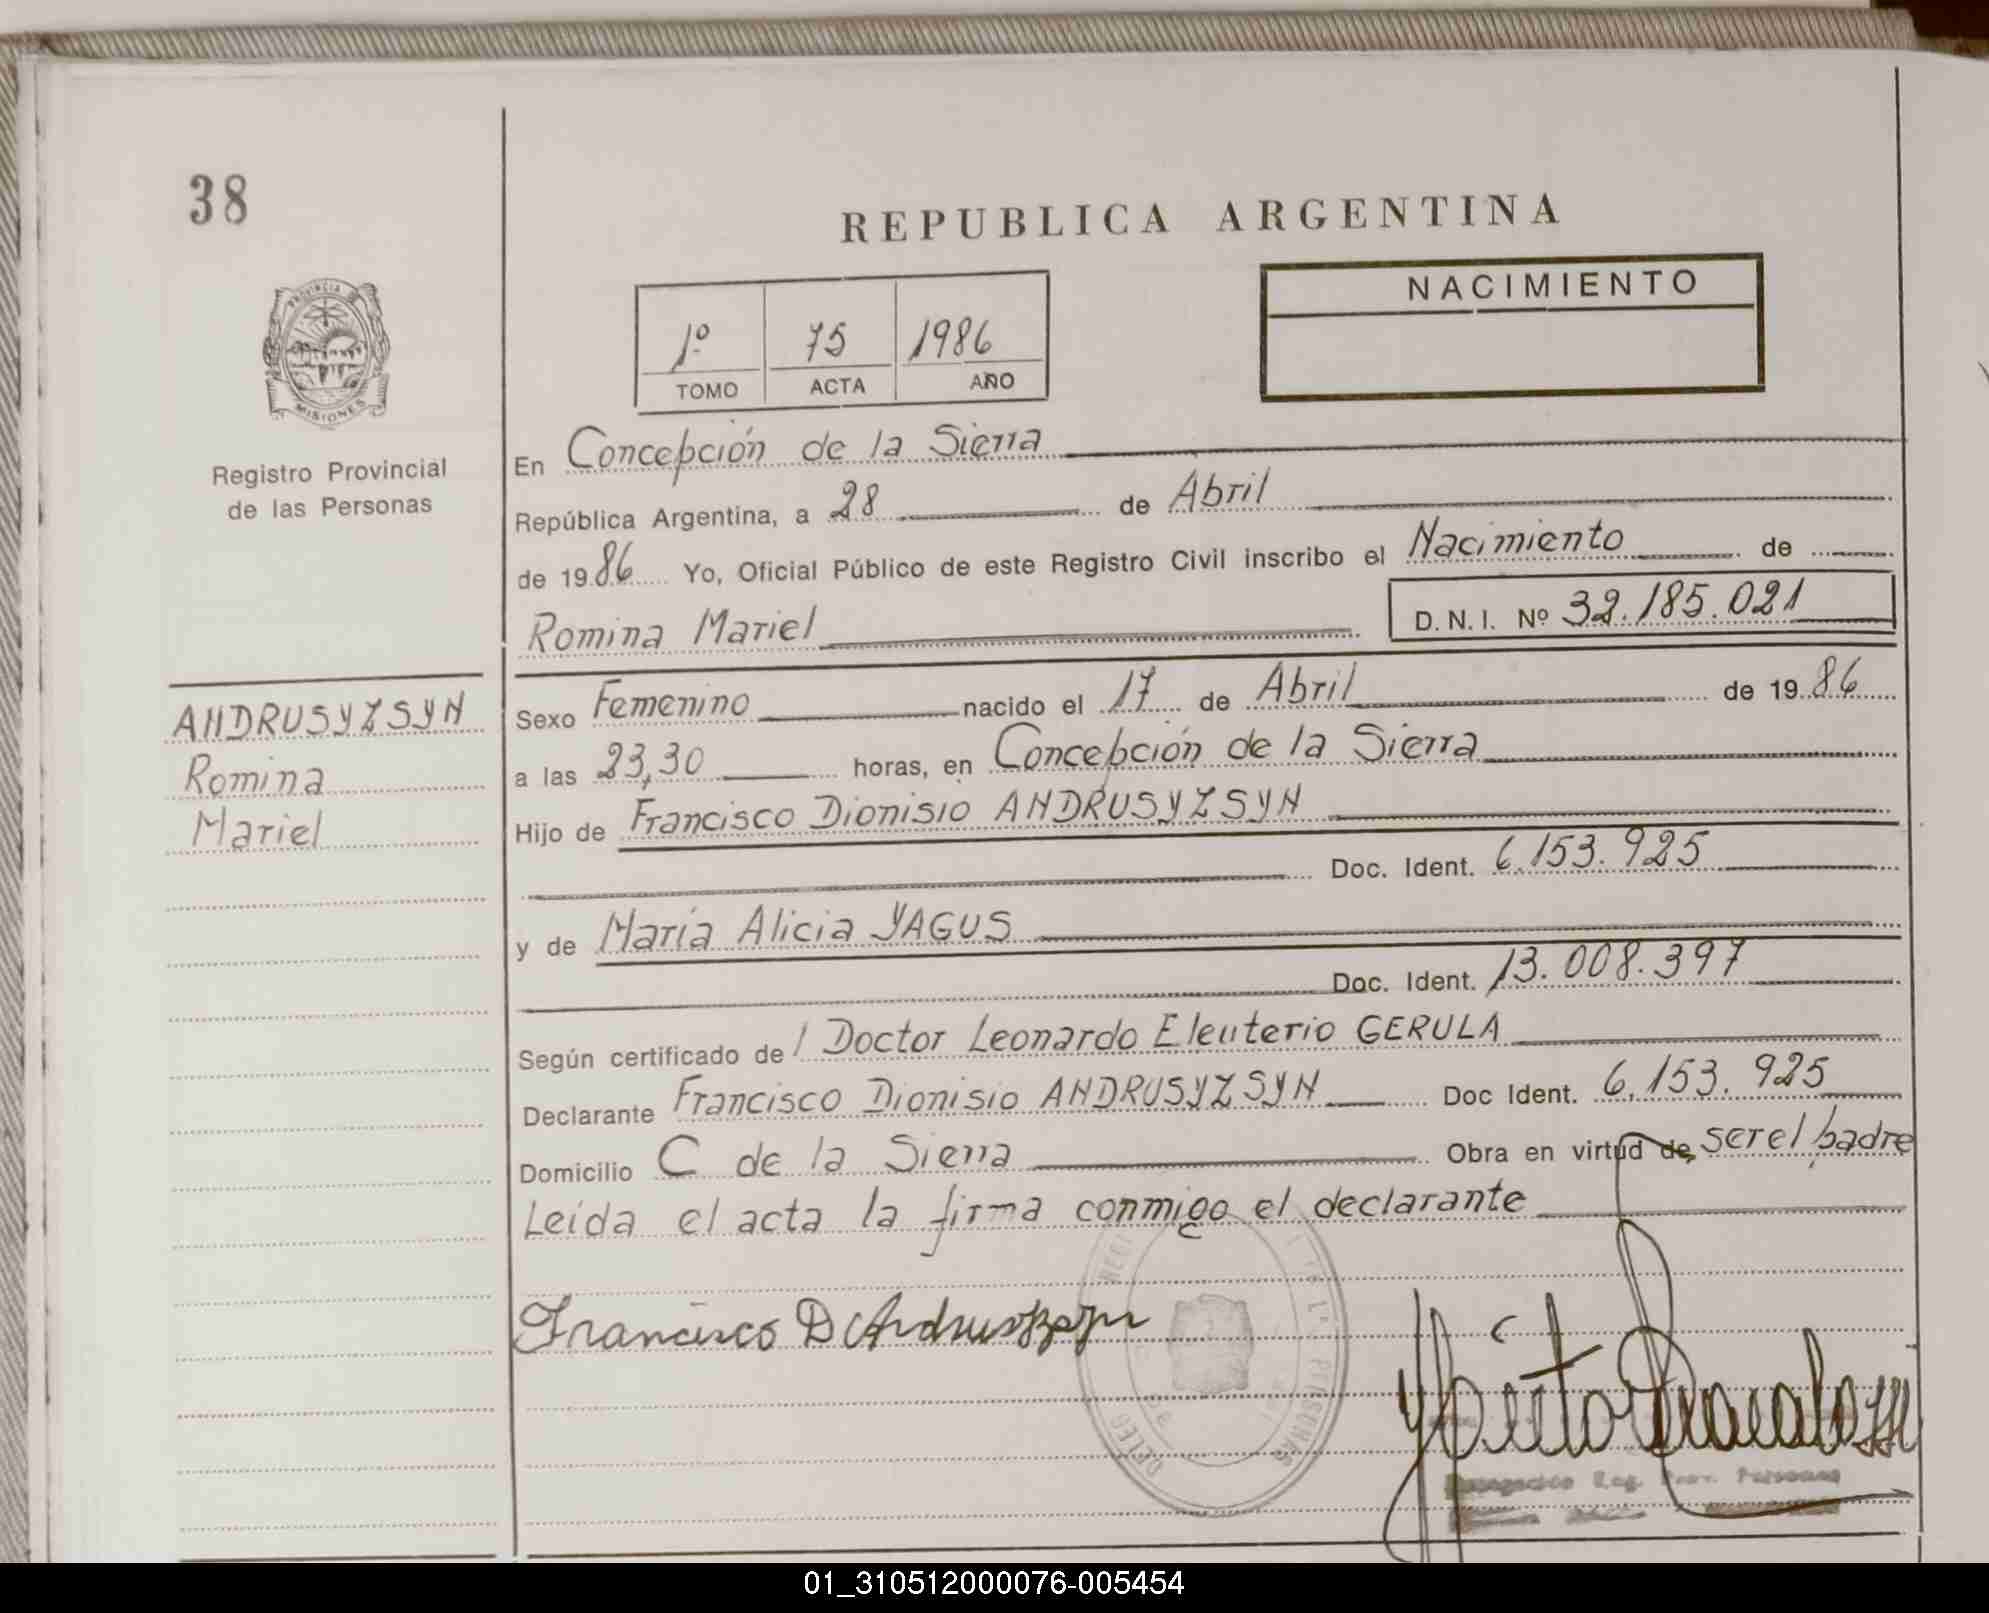 38
REPUBLICA ARGENTINA
NACIMIENTO
1º 75 1986
TOMO ACTA AÑO
PROVINCIA
MISIONES
Registro Provincial
de las Personas
En Concepción de la Sierra
República Argentina, a 28 de Abril
de 1986 Yo, Oficial Público de este Registro Civil inscribo el Nacimiento de
Romina Mariel D.N.I. Nº 32.185.021
ANDRUSYZSYN
Romina
Mariel
Sexo Femenino nacido el 17 de Abril de 1986
a las 23,30 horas, en Concepción de la Sierra
Hijo de Francisco Dionisio ANDRUSYZSYN
Doc. Ident. 6.153.925
y de María Alicia YAGUS
Doc. Ident. 13.008.397
Según certificado de / Doctor Leonardo Eleuterio GERULA
Declarante Francisco Dionisio ANDRUSYZSYN Doc Ident. 6.153.925
Domicilio C de la Sierra Obra en virtud de ser el padre
Leída el acta la firma conmigo el declarante
Francisco D Andrusyzsyn
01_310512000076-005454